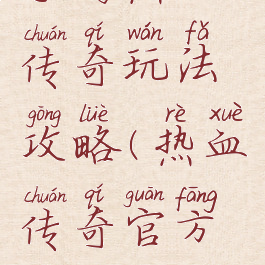 chuán qí wán fǎ
传奇玩法
gōng lüè rè xuè
攻略(热血
chuán qí guān fāng
传奇官方